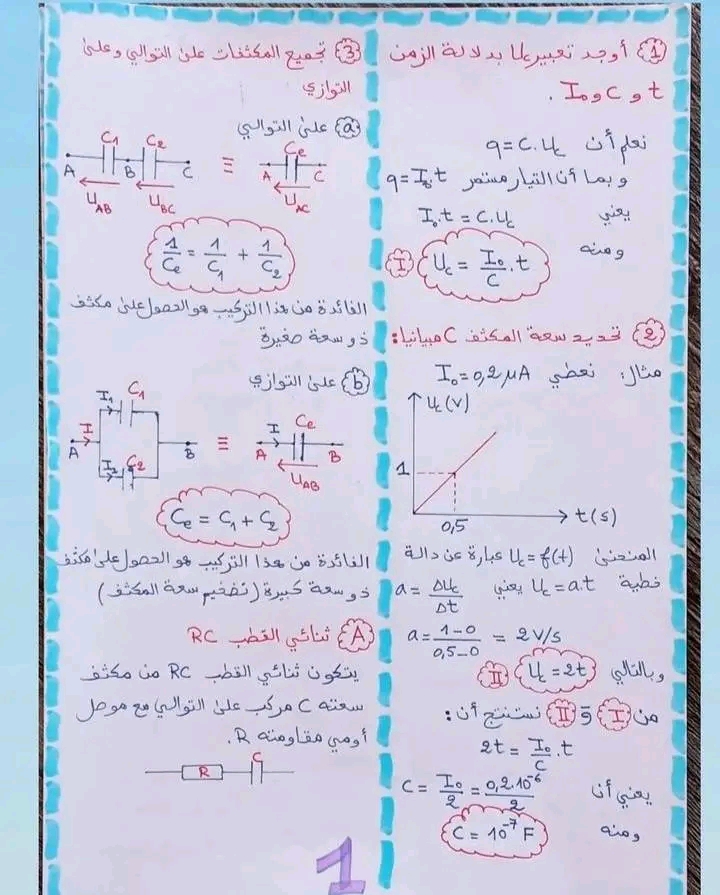 ① أوجد تعبير Uc بدلالة الزمن
t و C و I₀ .
نعلم أن q = C.Uc
وبما أن التيار مستمر q = I₀.t
يعني I₀.t = C.Uc
ومنه Uc = I₀/C . t Ⅰ
② تحديد سعة المكثف C مبيانيا:
مثال: نعطي I₀ = 0,2 μA
Uc (V)
1
0,5
t (s)
المنحنى Uc = f(t) عبارة عن دالة
خطية Uc = a.t يعني a = ΔUc/Δt
a = 1-0/0,5-0 = 2 V/s
وبالتالي Uc = 2t Ⅱ
من Ⅰ و Ⅱ نستنتج أن:
2t = I₀/C . t
يعني أن C = I₀/2 = 0,2.10⁻⁶/2
ومنه C = 10⁻⁷ F
③ تجميع المكثفات على التوالي وعلى
التوازي
ⓐ على التوالي
C₁ C₂ Ce
A B C ≡ A C
U_AB U_BC U_AC
1/Ce = 1/C₁ + 1/C₂
الفائدة من هذا التركيب هو الحصول على مكثف
ذو سعة صغيرة
ⓑ على التوازي
I₁ C₁
I Ce
A I B ≡ A B
I₂ C₂
U_AB
Ce = C₁ + C₂
الفائدة من هذا التركيب هو الحصول على مكثف
ذو سعة كبيرة (تضخيم سعة المكثف)
Ⓐ ثنائي القطب RC
يتكون ثنائي القطب RC من مكثف
سعته C مركب على التوالي مع موصل
أومي مقاومته R.
R C
1